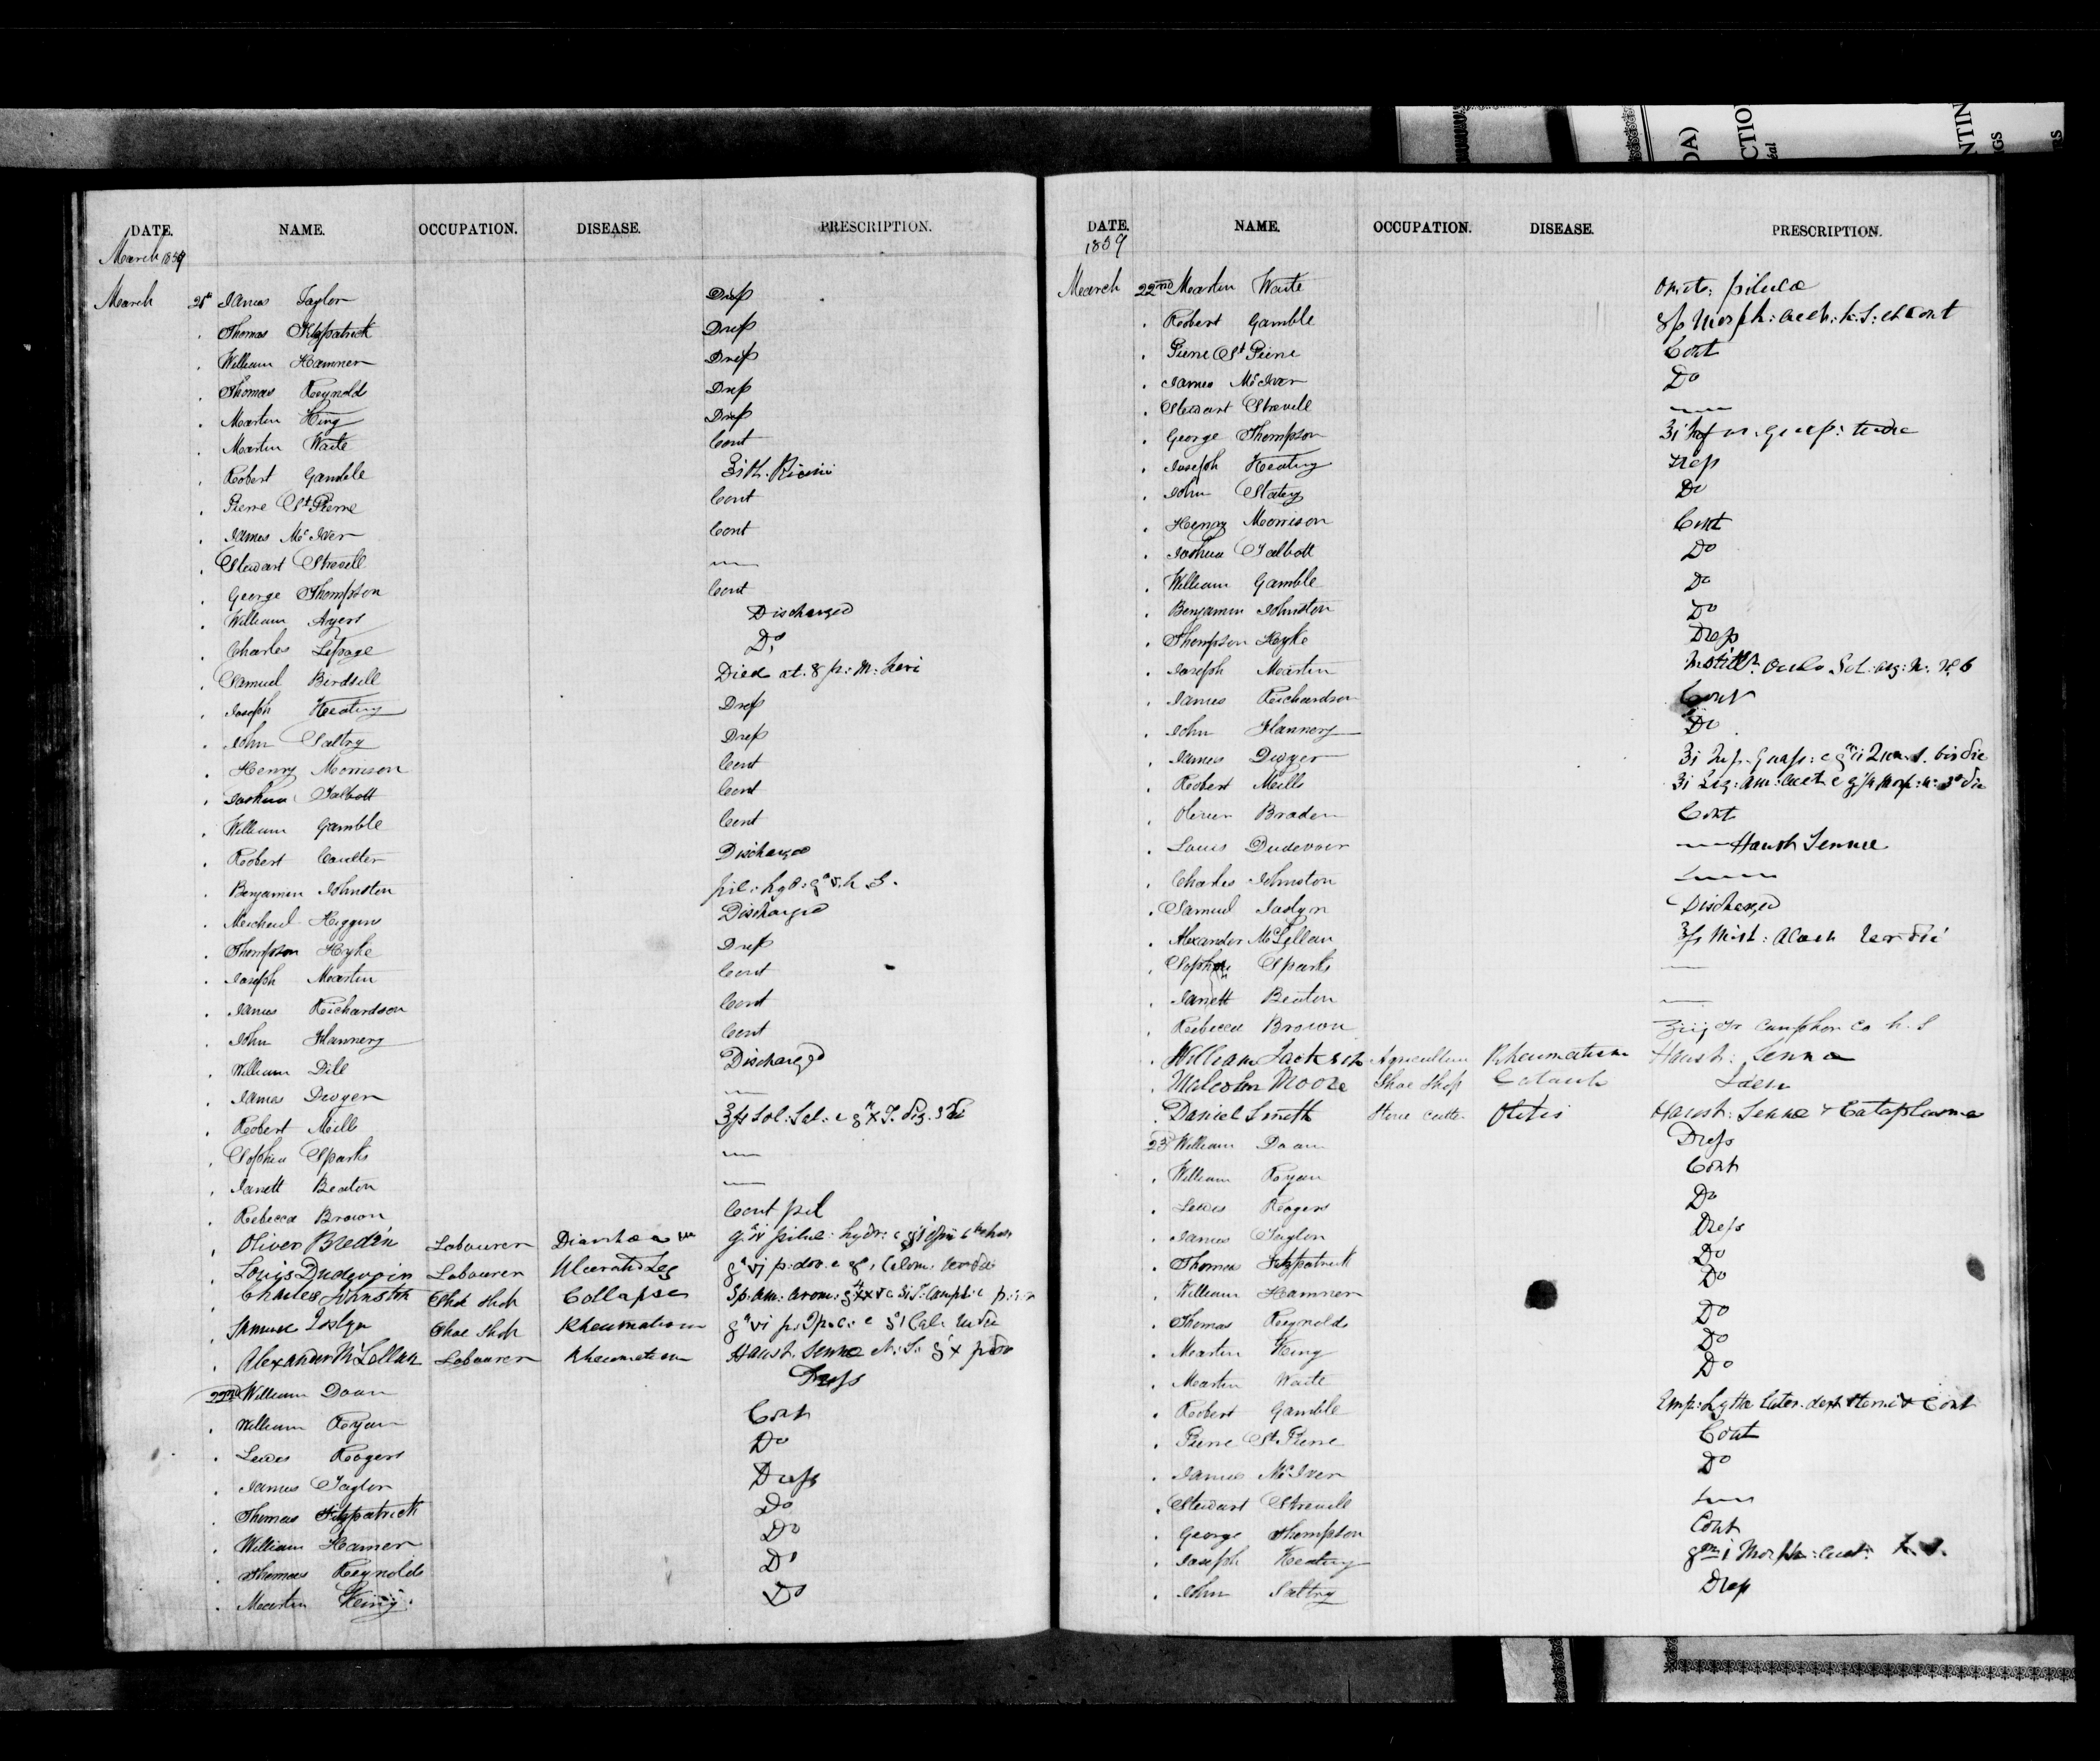 DATE. NAME. OCCUPATION. DISEASE. PRESCRIPTION.
March 1859
March James Taylor Drop
Thomas Fitzpatrick Drop
William Hamner Drop
Thomas Reynolds Drop
Martin King Drop
Martin Waite Cont
Robert Gamble Ricini
Pierre St Pierre Cont
James McIver Cont
Stewart Strevell
George Thompson Cont
William Ayers Discharged
Charles Lepage Do
Samuel Birdsell Died at 8 p: m:
Joseph Keating Drop
John Saltry Drop
Henry Morrison Cont
Joshua Talbott Cont
William Gamble Cont
Robert Coulter Discharged
Benjamin Johnston pil: hyd: gr v. h S.
Michael Higgins Discharged
Thompson Hyke Drop
Joseph Martin Cont
James Richardson Cont
John Flannery Cont
William Dill Discharged
James Dwyer
Robert Mills
Sophia Sparks
Janett Beaton
Rebecca Brown Cont pil
Oliver Breden Labourer Diarrhœa
Louis Dudevoir Labourer Ulcerated Leg
Charles Johnston Shoe Shop Collapse
Samuel Joslyn Shoe Shop Rheumatism
Alexander McLellan Labourer Rheumatism Haust. Senna
22nd William Doan Drops
William Ryan Cont
Lewis Rogers Do
James Taylor Drops
Thomas Fitzpatrick Do
William Hamer Do
Thomas Reynolds Do
Martin King Do
DATE. NAME. OCCUPATION. DISEASE. PRESCRIPTION.
1859
March 22nd Martin Waite pilulæ
Robert Gamble Cont
Pierre St Pierre Cont
James McIver Do
Stewart Strevell
George Thompson
Joseph Keating Drop
John Slatry Do
Henry Morrison Cont
Joshua Talbott Do
William Gamble Do
Benjamin Johnston Do
Thompson Hyke Drop
Joseph Martin
James Richardson Cont
John Flannery Do
James Dwyer
Robert Mills
Oliver Braden Cont
Louis Dudevoir Haust Sennæ
Charles Johnston
Samuel Joslyn Discharged
Alexander McLellan
Sophia Sparks
Janett Beaton
Rebecca Brown Camphor Co h. S
William Jackson Agriculture Rheumatism Haust: Senna
Malcolm Moore Shoe Shop Catarrh Idem
Daniel Smith Stone cutter Otitis Haust: Sennæ & Cataplasma
23 William Doan Drops
William Ryan Cont
Lewis Rogers Do
James Taylor Drops
Thomas Fitzpatrick Do
William Hamner Do
Thomas Reynolds Do
Martin King Do
Martin Waite Do
Robert Gamble Cont
Pierre St Pierre Cont
James McIver Do
Stewart Strevell
George Thompson Cont
Joseph Keating
John Saltry Drop